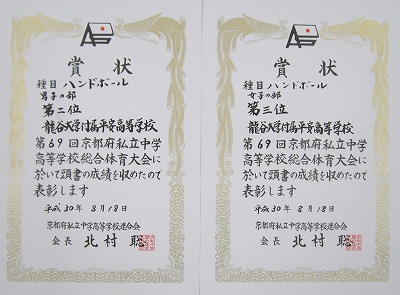 賞状
種目 ハンドボール
男子の部
第二位
龍谷大学付属平安高等学校
第69回京都府私立中学
高等学校総合体育大会に
於いて頭書の成績を収めたので
表彰します
平成30年 8月18日
京都府私立中学高等学校連合会
会長 北村 聡
賞状
種目 ハンドボール
女子の部
第三位
龍谷大学付属平安高等学校
第69回京都府私立中学
高等学校総合体育大会に
於いて頭書の成績を収めたので
表彰します
平成30年 8月18日
京都府私立中学高等学校連合会
会長 北村 聡